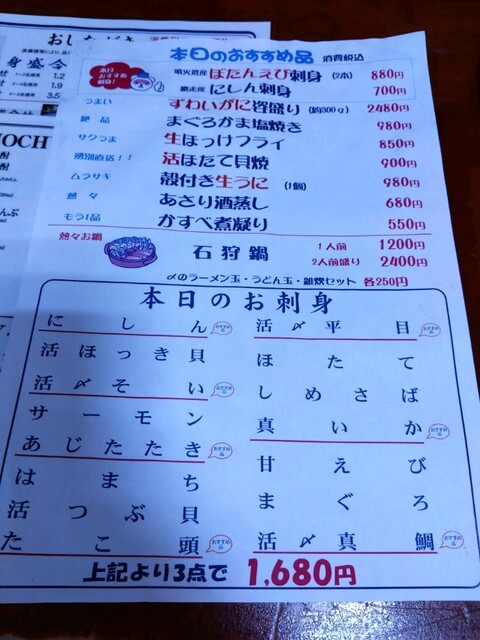 本日のおすすめ品 消費税込
本日
おすすめ
刺身!
噴火湾産 ぼたんえび刺身 (2本) 880円
網走産 にしん刺身 700円
うまい ずわいがに甲盛り (約300g) 2480円
絶品 まぐろかま塩焼き 980円
サクうま 生ほっけフライ 850円
湧別直店!! 活ほたて貝焼 900円
ムラサキ 殻付き生うに (1個) 980円
熱々 あさり酒蒸し 680円
もう1品 かすべ煮凝り 550円
熱々お鍋 石狩鍋 1人前 1200円
2人前盛り 2400円
〆のラーメン玉・うどん玉・雑炊セット 各250円
本日のお刺身
にしん おすすめ品
活ほっき貝
活〆そい おすすめ品
サーモン
あじたたき おすすめ品
はまち
活つぶ貝
たこ頭 おすすめ品
活〆平目 おすすめ品
ほたて
しめさば
真いか おすすめ品
甘えび
まぐろ
活〆真鯛 おすすめ品
上記より3点で 1,680円
身盛合
1.2
1.9